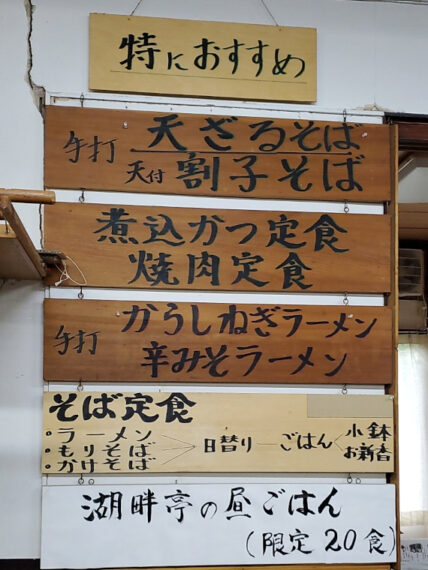 特におすすめ
手打 天ざるそば
天付 割子そば
煮込かつ定食
焼肉定食
手打 からしねぎラーメン
辛みそラーメン
そば定食
・ラーメン
・もりそば
・かけそば
日替り ごはん
小鉢
お新香
湖畔亭の昼ごはん
(限定20食)